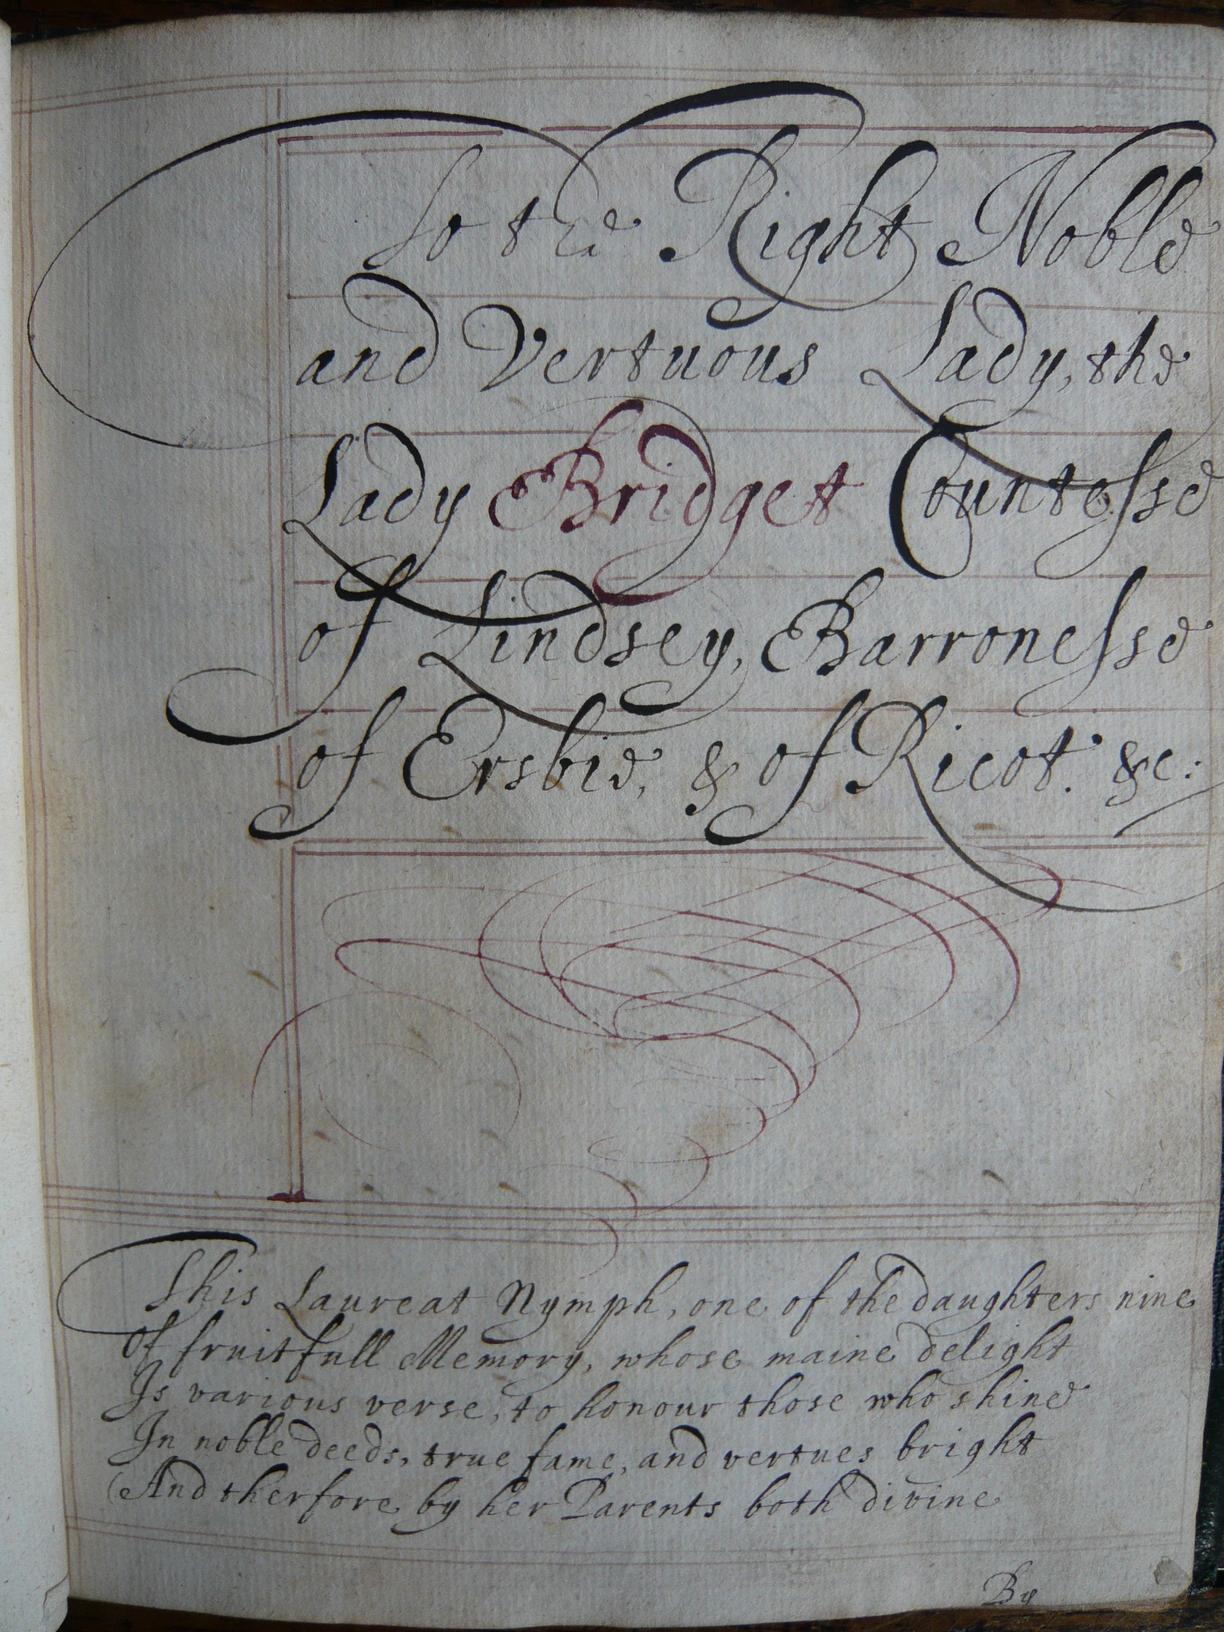 To the Right Noble
and Vertuous Lady, the
Lady Bridget Countesse
of Lindsey, Barronesse
of Ersbie, & of Ricot. &c:
This Laureat Nymph, one of the daughters nine
Of fruitfull Memory, whose maine delight
Is various verse, to honour those who shine
In noble deeds, true fame, and vertues bright
(And therfore by her Parents both divine
By